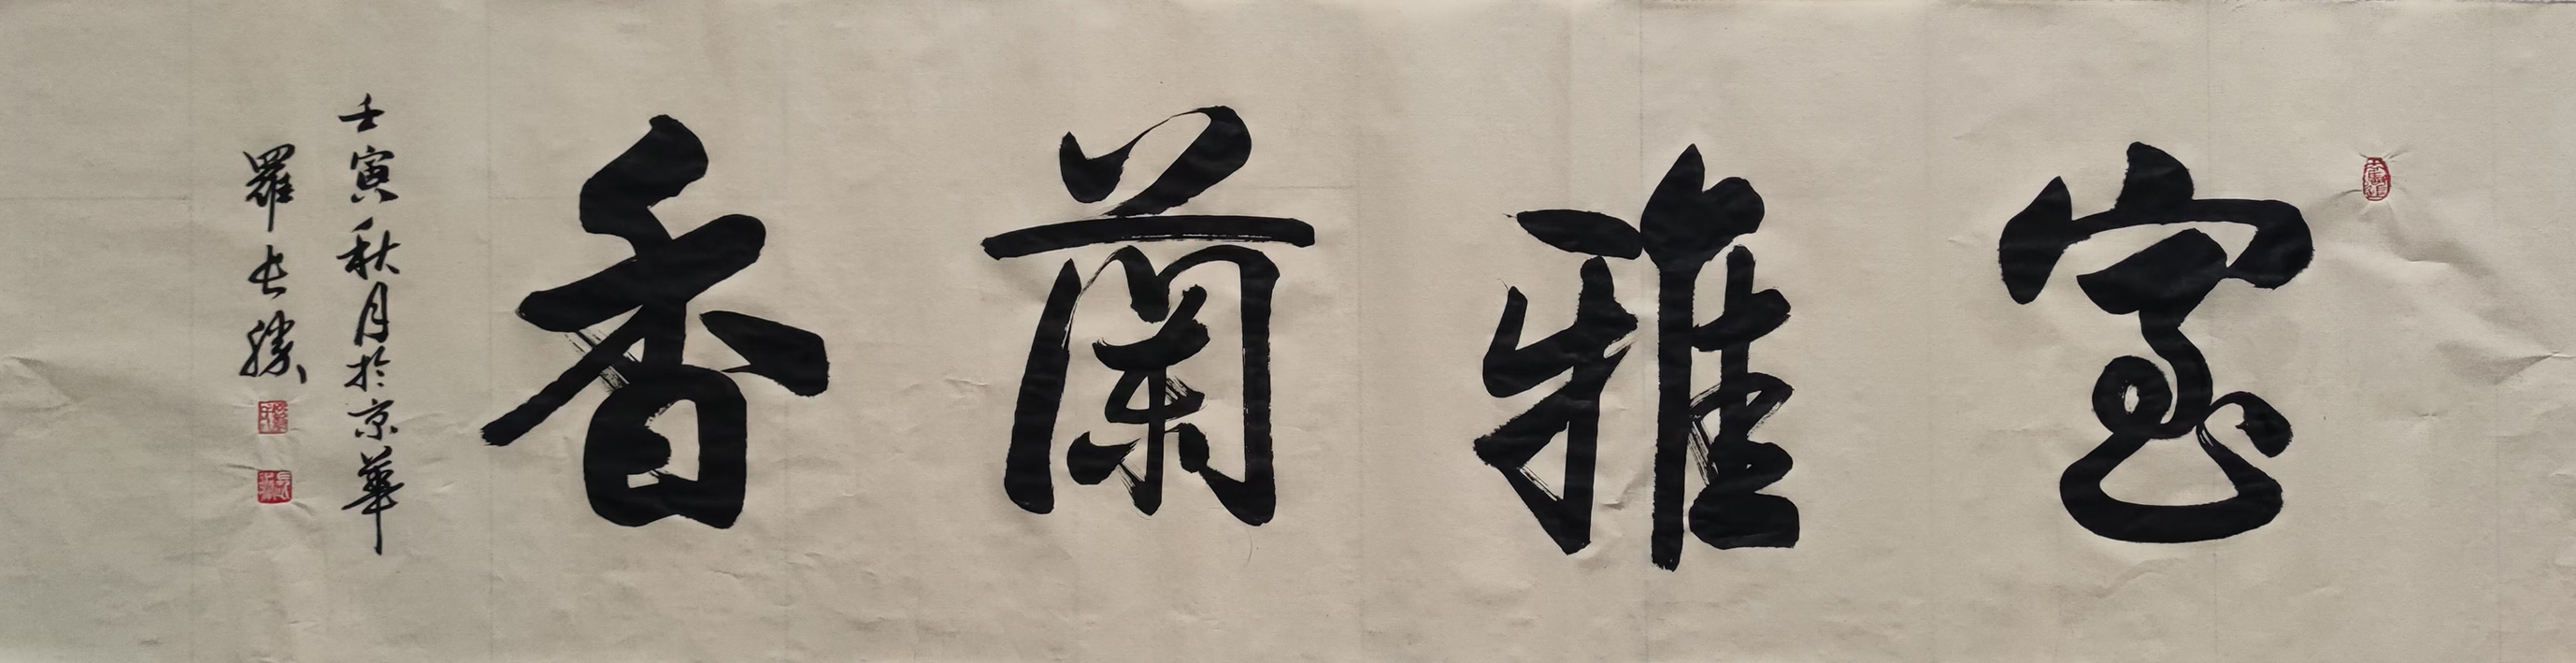 室雅蘭香
壬寅秋月於京華
羅長勝